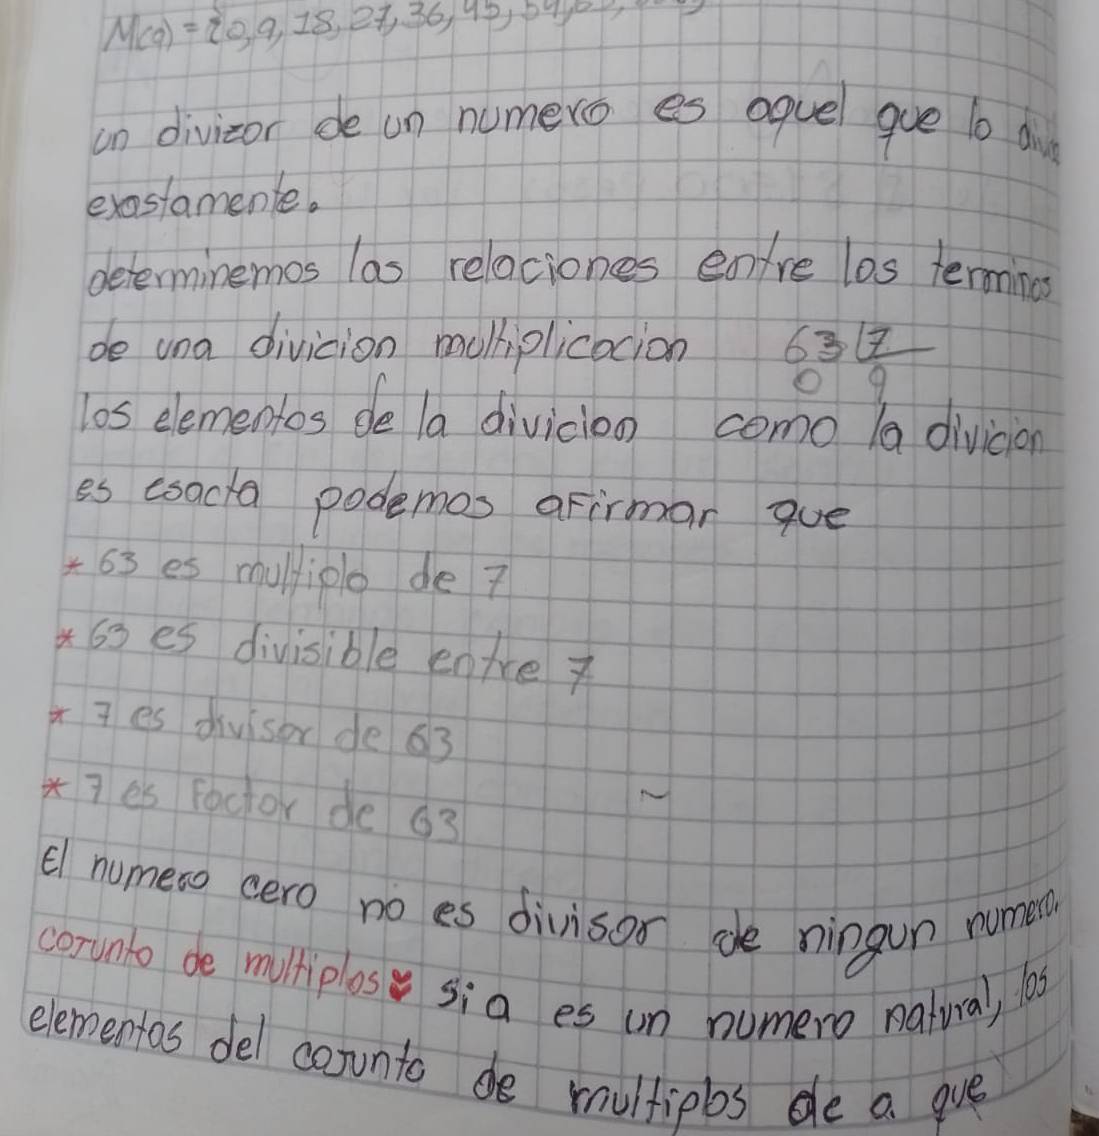 M(9) = {0, 9, 18, 27, 36, 45, 54, 63,
un divizor de un numero es aquel que lo divide
exastamente.
determinemos las relaciones entre los terminos
de una divicion multiplicacion 63 |7
0 9
los elementos de la divicion como la divicion
es esacta podemos aFirmar que
* 63 es multiplo de 7
* 63 es divisible entre 7
* 7 es divisor de 63
* 7 es Factor de 63 ~
El numero cero no es divisor de ningun numero.
cojunto de multiplos si a es un numero natural, los
elementos del cojunto de multiplos de a que